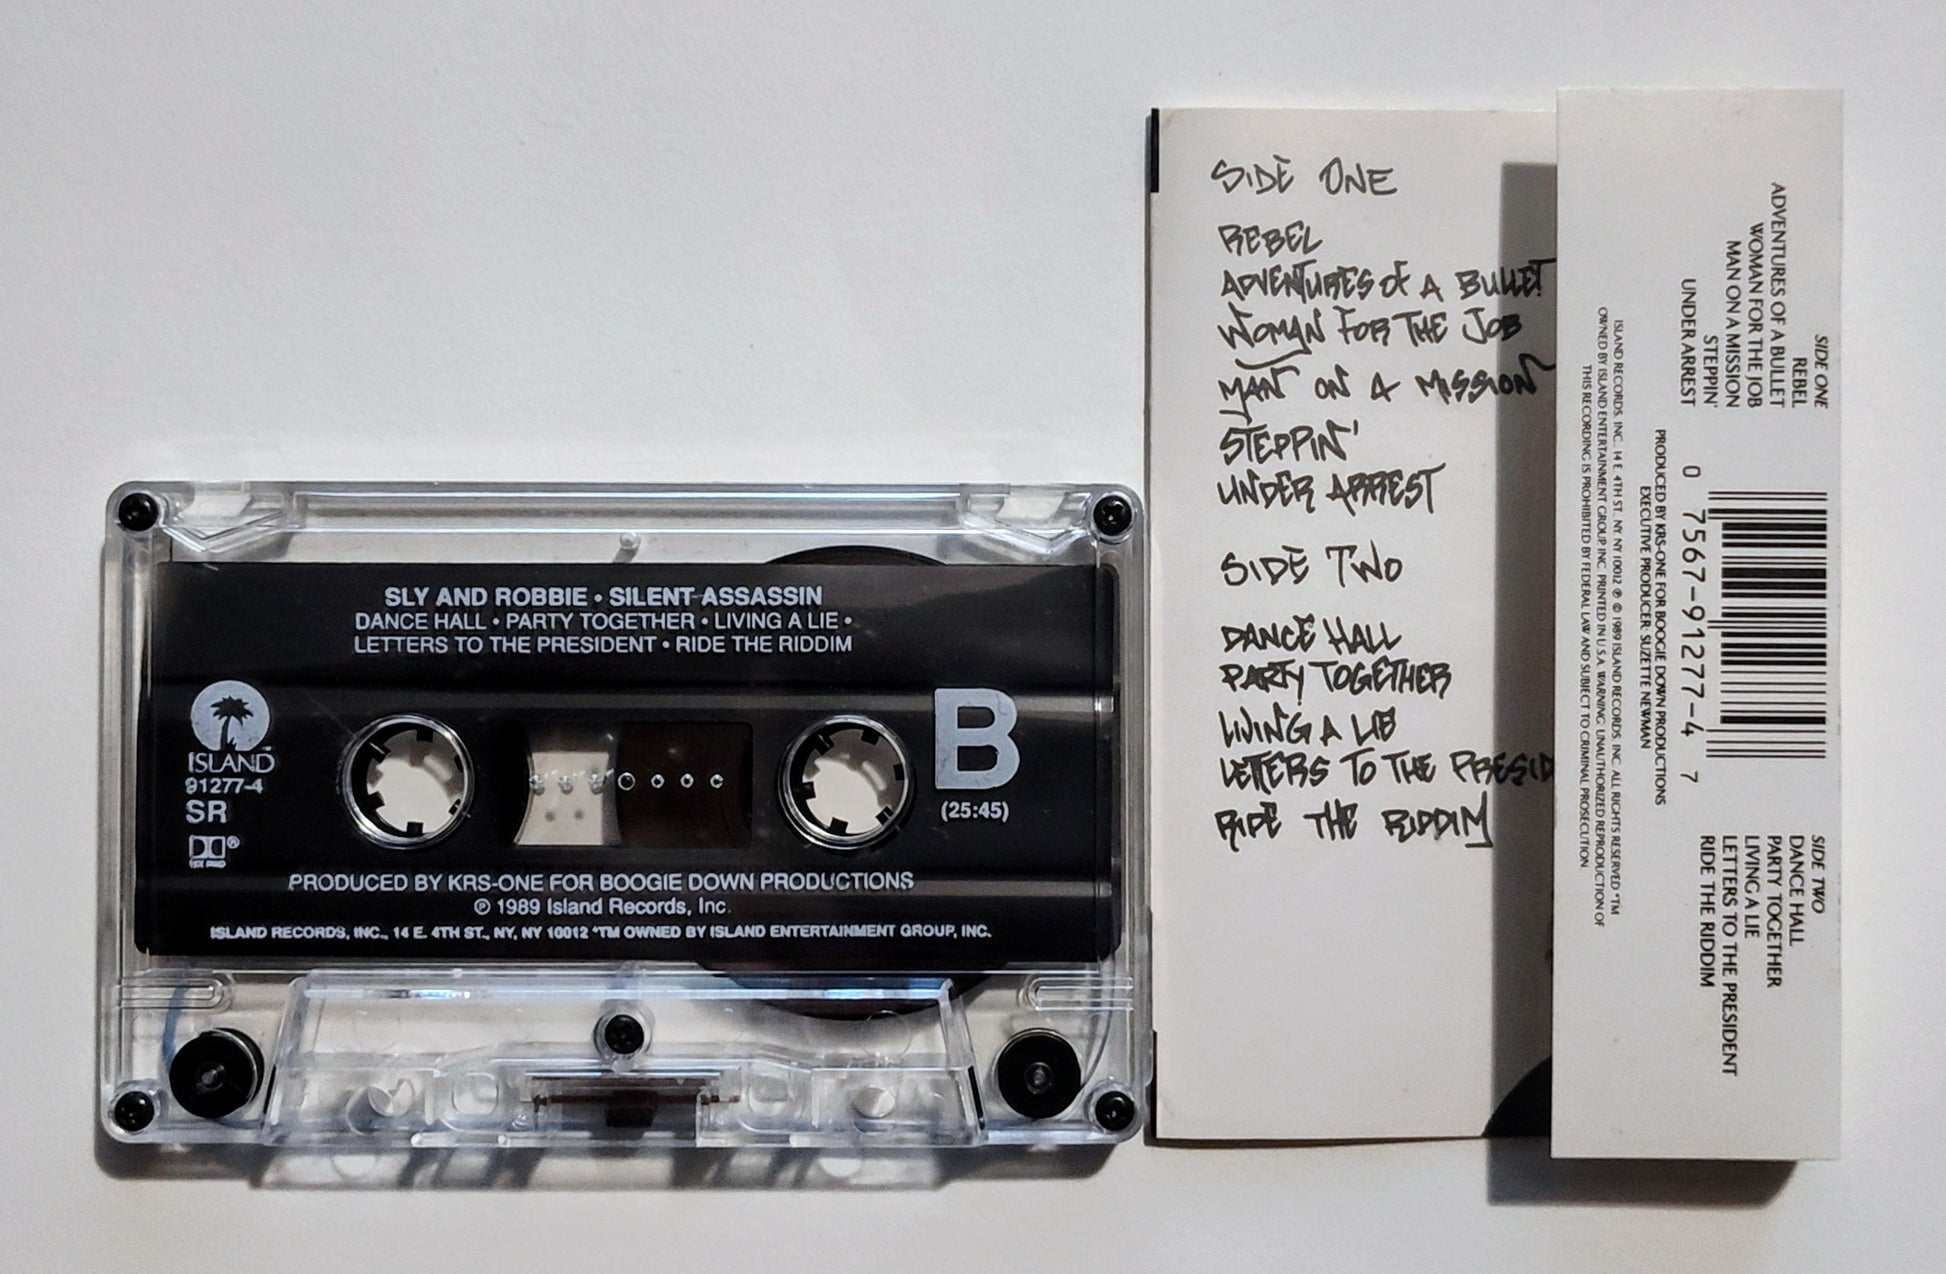 SLY AND ROBBIE • SILENT ASSASSIN
DANCE HALL • PARTY TOGETHER • LIVING A LIE •
LETTERS TO THE PRESIDENT • RIDE THE RIDDIM
ISLAND™
91277-4
SR
B
(25:45)
PRODUCED BY KRS-ONE FOR BOOGIE DOWN PRODUCTIONS
℗ 1989 Island Records, Inc.
ISLAND RECORDS, INC., 14 E. 4TH ST., NY, NY 10012 *TM OWNED BY ISLAND ENTERTAINMENT GROUP, INC.
SIDE ONE
REBEL
ADVENTURES OF A BULLET
WOMAN FOR THE JOB
MAN ON A MISSION
STEPPIN'
UNDER ARREST
SIDE TWO
DANCE HALL
PARTY TOGETHER
LIVING A LIE
LETTERS TO THE PRESID
RIDE THE RIDDIM
SIDE ONE
REBEL
ADVENTURES OF A BULLET
WOMAN FOR THE JOB
MAN ON A MISSION
STEPPIN'
UNDER ARREST
0 7567-91277-4 7
SIDE TWO
DANCE HALL
PARTY TOGETHER
LIVING A LIE
LETTERS TO THE PRESIDENT
RIDE THE RIDDIM
PRODUCED BY KRS-ONE FOR BOOGIE DOWN PRODUCTIONS
EXECUTIVE PRODUCER: SUZETTE NEWMAN
ISLAND RECORDS, INC., 14 E. 4TH ST. NY, NY 10012 ℗ © 1989 ISLAND RECORDS, INC. ALL RIGHTS RESERVED *TM
OWNED BY ISLAND ENTERTAINMENT GROUP, INC. PRINTED IN U.S.A. WARNING: UNAUTHORIZED REPRODUCTION OF
THIS RECORDING IS PROHIBITED BY FEDERAL LAW AND SUBJECT TO CRIMINAL PROSECUTION.